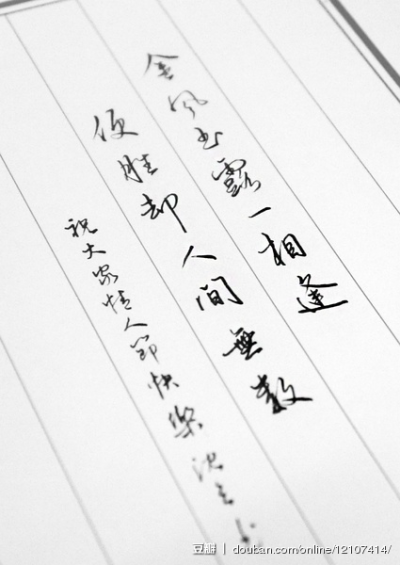 金风玉露一相逢
便胜却人间無数
祝大家情人節快樂
豆瓣 | douban.com/online/12107414/